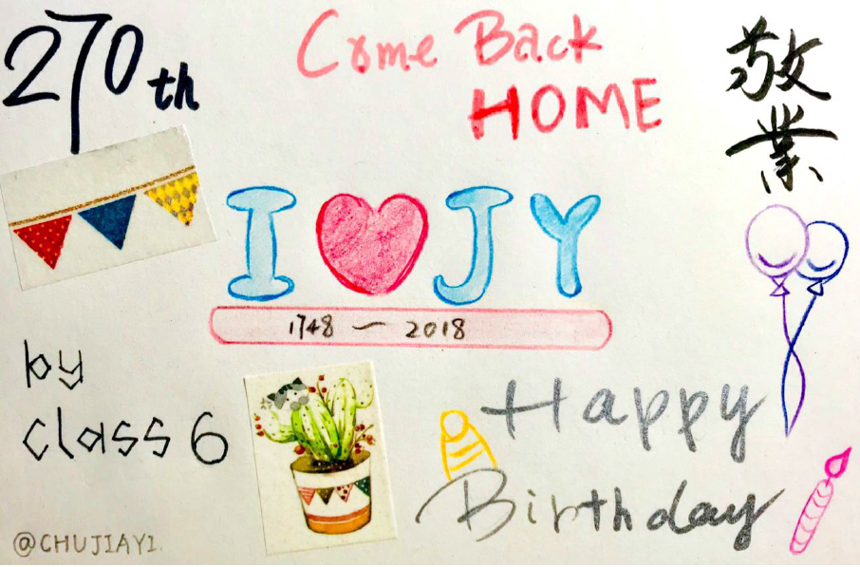 270th
Come Back
HOME
敬業
I ♥ JY
1748 — 2018
by
class 6
Happy
Birthday
@CHUJIAYI